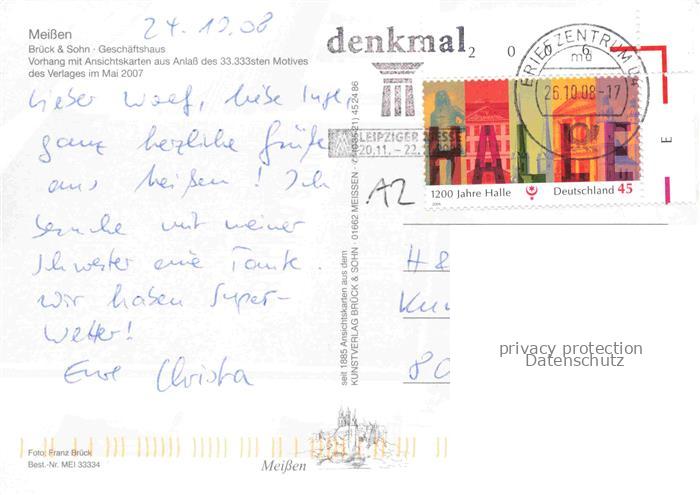 Meißen
Brück & Sohn · Geschäftshaus
Vorhang mit Ansichtskarten aus Anlaß des 33.333sten Motives
des Verlages im Mai 2007
24.10.08
Lieber Wolf, liebe Inge,
ganz herzliche Grüße
aus Meißen! Ich
besuche mit meiner
Schwester eine Tante.
Wir haben Super-
Wetter!
Eure Christa
Foto: Franz Brück
Best.-Nr. MEI 33334
Meißen
seit 1885 Ansichtskarten aus dem
KUNSTVERLAG BRÜCK & SOHN · 01662 MEISSEN · (03521) 452486
denkmal 2 0 0 6
LEIPZIGER MESSE
20.11. – 22.
BRIEFZENTRUM 04
mb
26.10.08-17
HALLE
1200 Jahre Halle
Deutschland 45
2006
E
A2
H &
80
privacy protection
Datenschutz